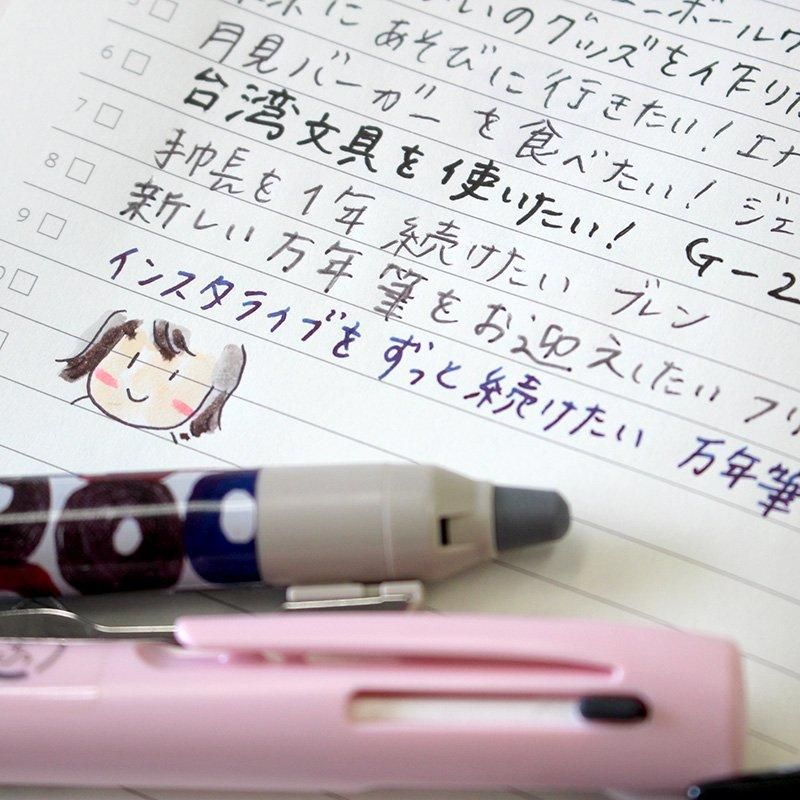 いのグッズを作りた
にあそびに行きたい! エナ
6 月見バーガーを食べたい! ジェ
7 台湾文具を使いたい! G-2
8 手帳を1年続けたい ブレン
9 新しい万年筆をお迎えしたい フリ
インスタライブをずっと続けたい 万年筆